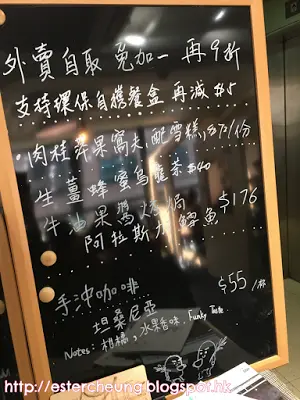 外賣自取 免加一 再9折
支持環保自攜餐盒 再減$5
·肉桂苹果窩夫,配雪糕,$78/份
生薑蜂蜜烏龍茶 $40
牛油果醬焗
阿拉斯加鱈魚 $176
手沖咖啡
坦桑尼亞 $55/杯
Notes: 柑橘, 水果香味, Funky Taste
http://estercheung.blogspot.hk